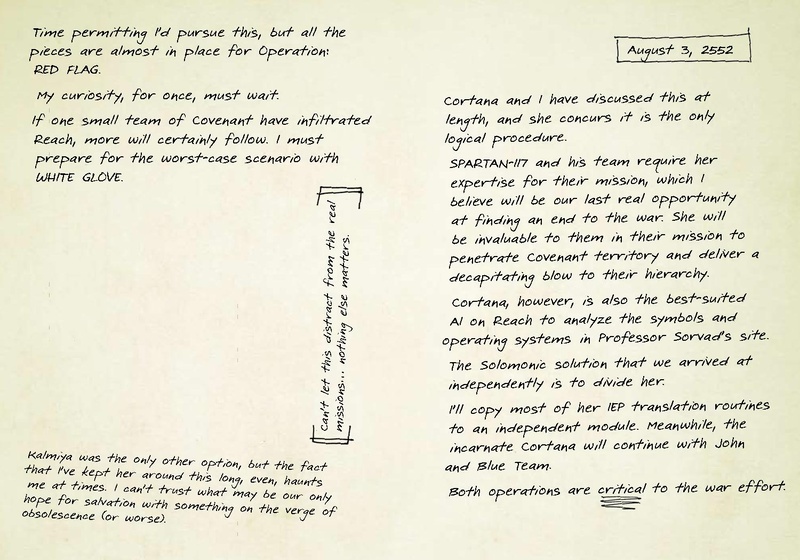 Time permitting I'd pursue this, but all the
pieces are almost in place for Operation:
RED FLAG.
My curiosity, for once, must wait.
If one small team of Covenant have infiltrated
Reach, more will certainly follow. I must
prepare for the worst-case scenario with
WHITE GLOVE.
Can't let this distract from the real
missions... nothing else matters.
Kalmiya was the only other option, but the fact
that I've kept her around this long, even, haunts
me at times. I can't trust what may be our only
hope for salvation with something on the verge of
obsolescence (or worse).
August 3, 2552
Cortana and I have discussed this at
length, and she concurs it is the only
logical procedure.
SPARTAN-117 and his team require her
expertise for their mission, which I
believe will be our last real opportunity
at finding an end to the war. She will
be invaluable to them in their mission to
penetrate Covenant territory and deliver a
decapitating blow to their hierarchy.
Cortana, however, is also the best-suited
AI on Reach to analyze the symbols and
operating systems in Professor Sorvad's site.
The Solomonic solution that we arrived at
independently is to divide her.
I'll copy most of her IEP translation routines
to an independent module. Meanwhile, the
incarnate Cortana will continue with John
and Blue Team.
Both operations are critical to the war effort.